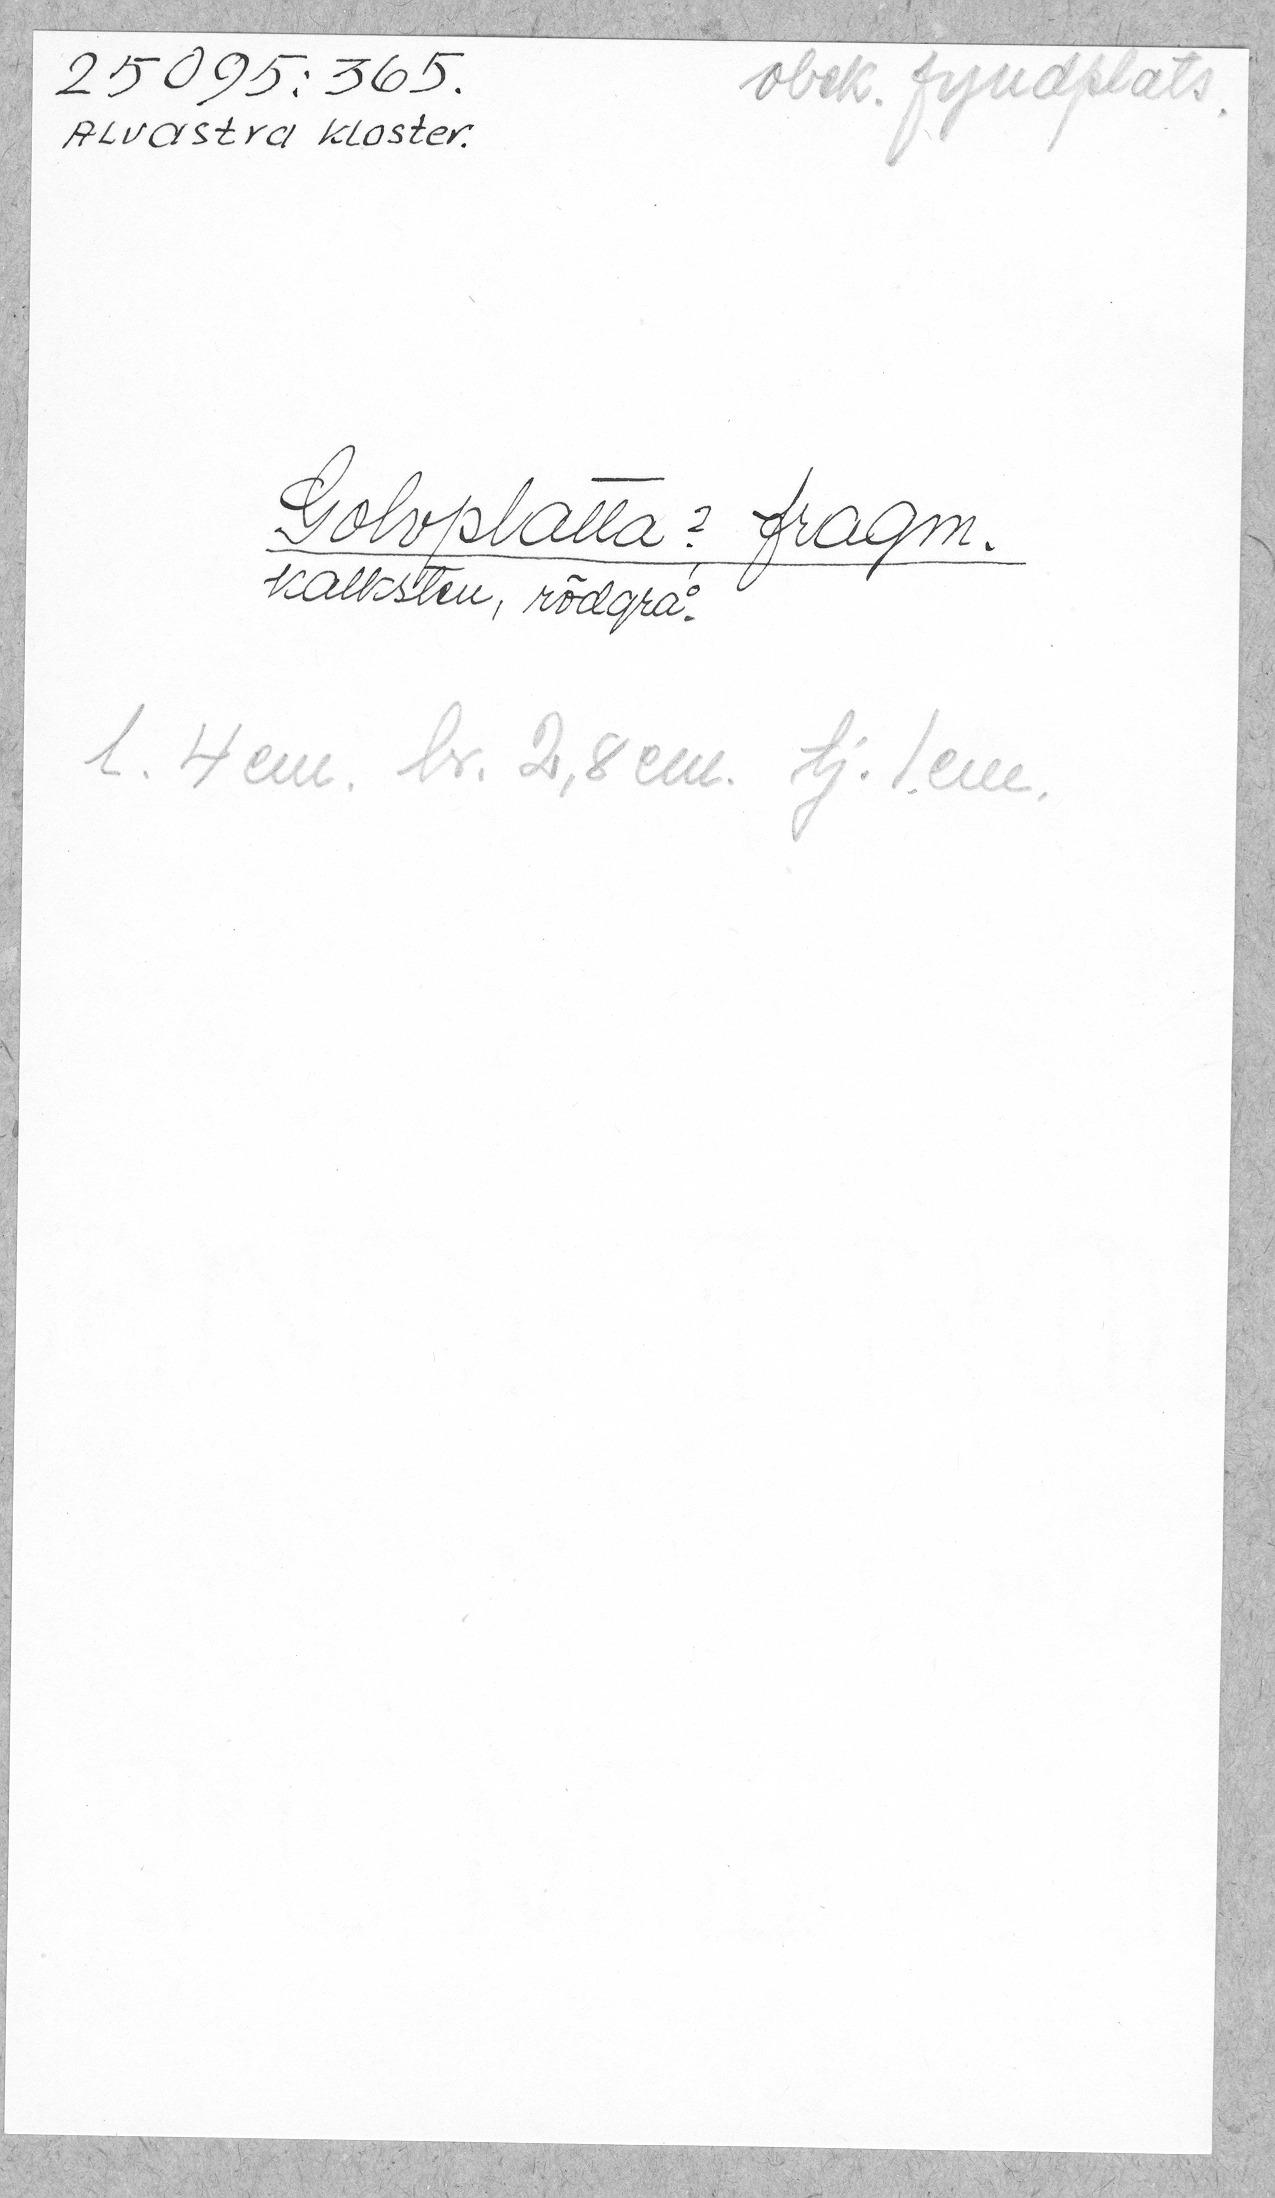 25095:365.
Alvastra kloster.
obek. fyndplats.
Golvplatta? fragm.
kalksten, rödgrå.
l. 4 cm. br. 2,8 cm. tj. 1 cm.